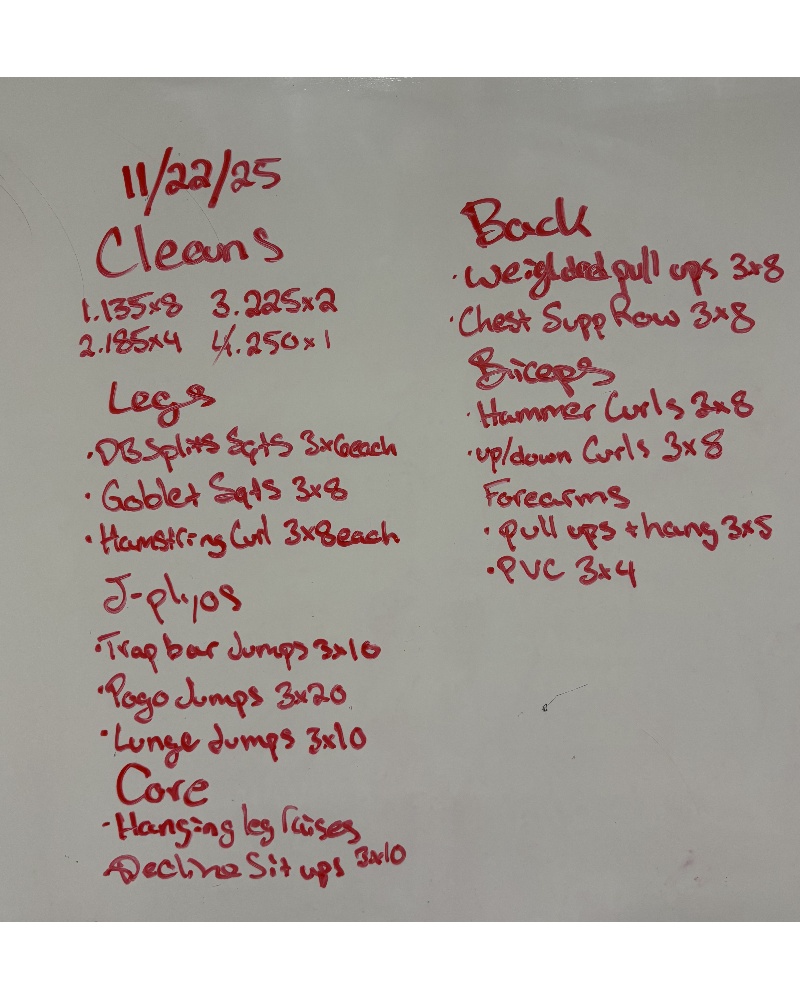 11/22/25
Cleans
1.135x8 3.225x2
2.185x4 4.250x1
Legs
·DB Splits Sqts 3x6each
·Goblet Sqts 3x8
·Hamstring Curl 3x8each
J-plyos
·Trap bar Jumps 3x10
·Pogo Jumps 3x20
·Lunge Jumps 3x10
Core
·Hanging leg raises
·Decline Sit ups 3x10
Back
·Weighded pull ups 3x8
·Chest Supp Row 3x8
Biceps
·Hammer Curls 3x8
·up/down Curls 3x8
Forearms
·pull ups + hang 3x5
·PVC 3x4